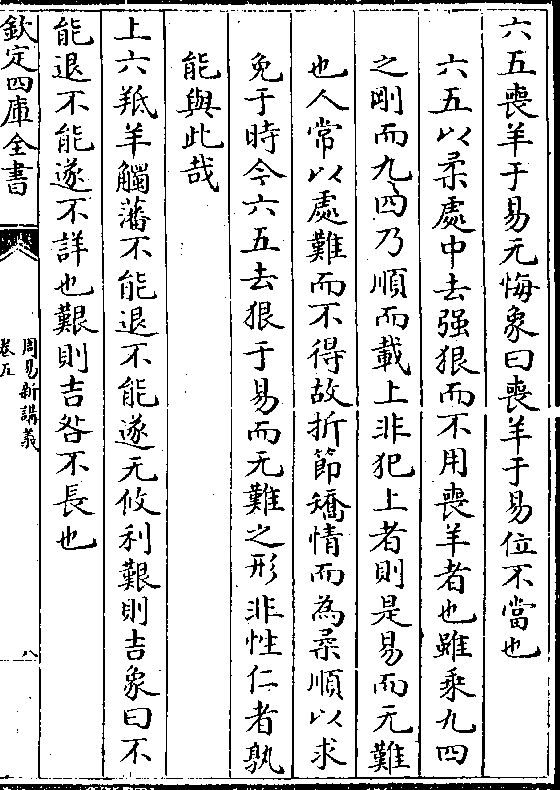 六五喪羊于易无悔象曰喪羊于易位不當也
六五以柔處中去强狠而不用喪羊者也雖乘九四
之剛而九四乃順而載上非犯上者則是易而无難
也人常以處難而不得故折節矯情而為柔順以求
免于時今六五去狠于易而无難之形非性仁者孰
能與此哉
上六羝羊觸藩不能退不能遂无攸利艱則吉象曰不
能退不能遂不詳也艱則吉咎不長也
欽定四庫全書
周易新講義
卷五
八